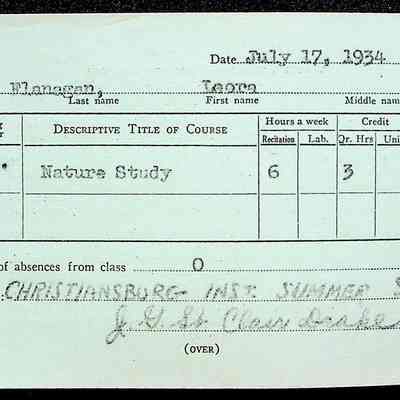 Date July 17, 1934
Flanagan, Leora
Last name First name Middle nam
Descriptive Title of Course Hours a week Credit
Recitation Lab. Qr. Hrs Uni
Nature Study 6 3
of absences from class 0
CHRISTIANSBURG INST. SUMMER S
J. G. St. Clair Drake
(OVER)